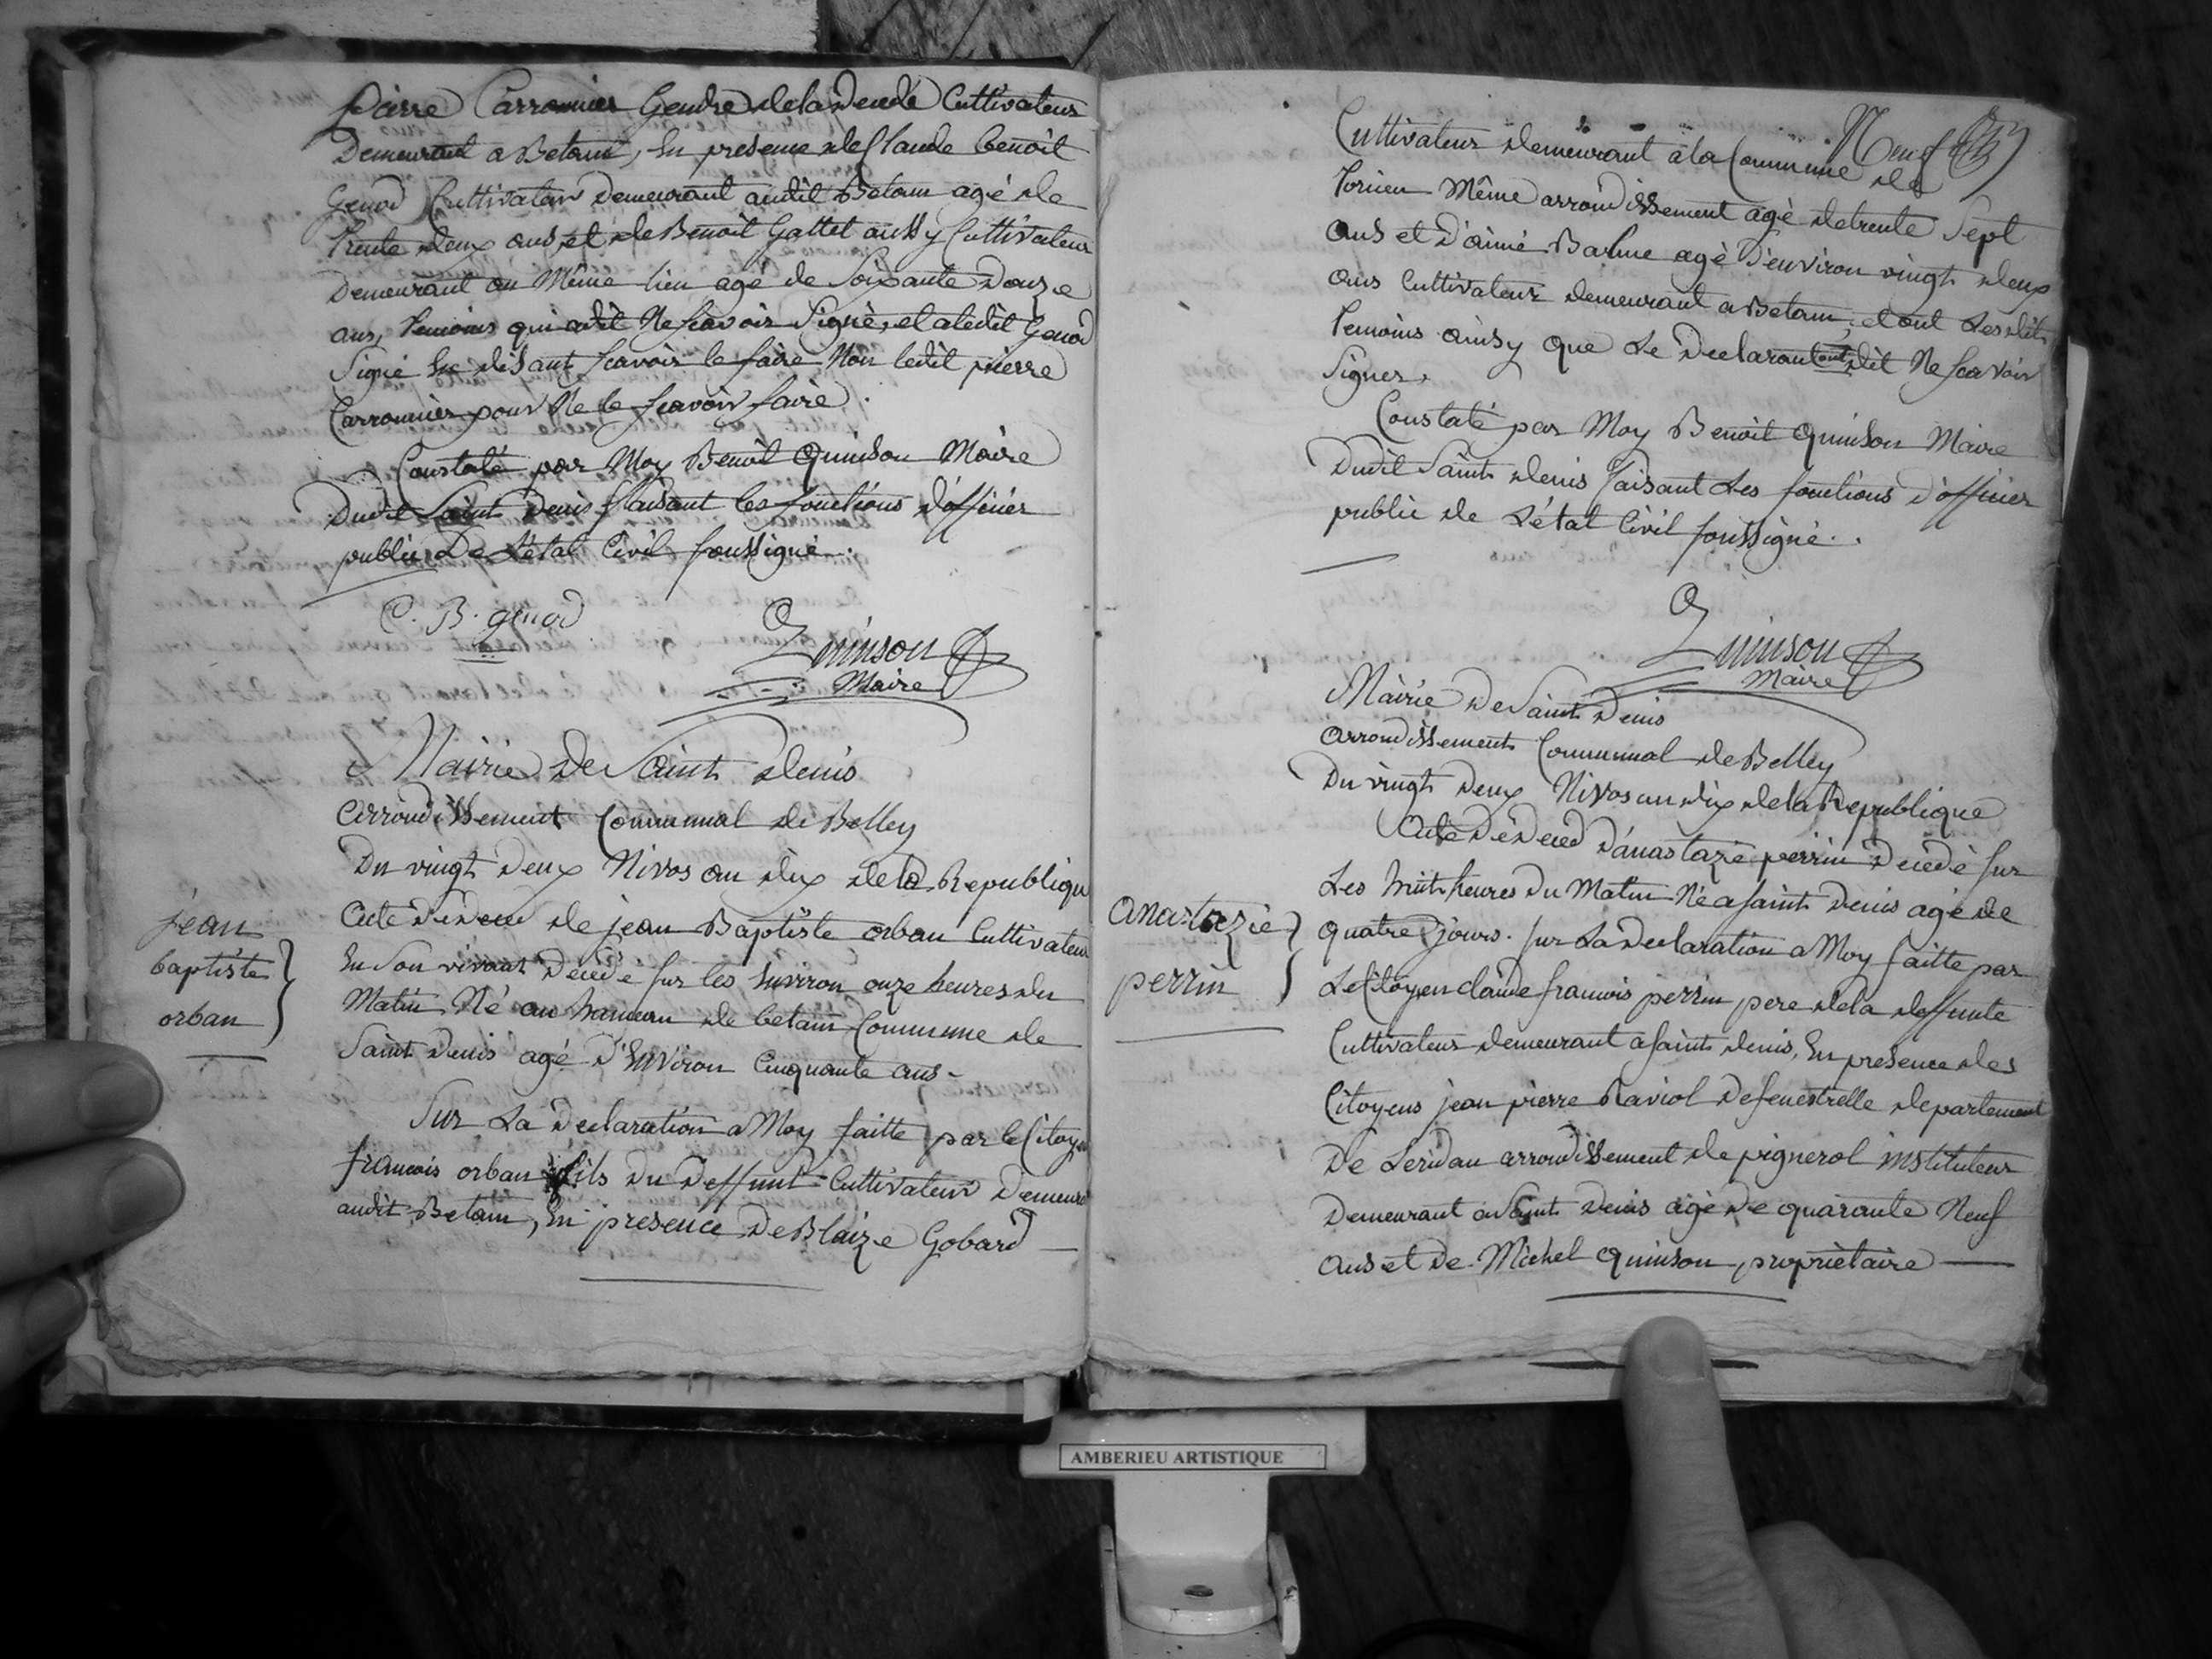 pierre Carronnier Gendre de la decedé Cultivateur
Demeurant a Betant, En presence de Claude benoit
Genod Cultivateur demeurant audit Betam agé de
trente deux ans, et de Benoit Gattet aussy Cultivateur
Demeurant au Même lieu agé de Soixante douze
ans, temoins qui a dit Ne scavoir Signé, et a ledit Genod
Signé En disant Scavoir le faire Non ledit pierre
Carronnier pour Ne le scavoir faire.
Constaté par Moy Benoit Quinson Maire
Dudit Saint Denis faisant les fonctions d'officier
public De L'état Civil soussigné.
C. B. genod
Quinson
Maire
Mairie De Saint Denis
arrondissement Communal de Belley
Du vingt deux Nivos an dix de la Republiqu
jean
baptiste
orban
Acte de deces de jean Baptiste orban Cultivateur
En Son vivant Decedé sur les Environ onze heures du
Matin Né au hameau de betam Commune de
Saint Denis agé d'Environ Cinquante ans -
Sur La Declaration a Moy faitte par le Citoyen
francois orban fils du Deffunt Cultivateur Demeura
audit Betam, En presence De Blaize Gobard
Neuf
Cultivateur demeurant a la Commune de
torcieu Même arrondissement agé de trente Sept
ans et d'aimé Balme agé d'environ vingt deux
ans Cultivateur demeurant a Betam, et ont Lesdits
temoins ainsy que Le Declarant ont dit Ne scavoir
Signer.
Constaté par Moy Benoit Quinson Maire
Dudit Saint Denis faisant Les fonctions d'officier
public de L'état Civil soussigné.
Quinson
Maire
Mairie De Saint Denis
arrondissement Communal de Belley
Du vingt deux Nivos an dix de la Republique
anastazie
perrin
Acte de deced D'anastazie perrin Decedé sur
Les huit heures du Matin Né a Saint Denis agé de
quatre jours. sur La Declaration a Moy faitte par
Le Citoyen claude francois perrin pere de la deffunte
Cultivateur demeurant a Saint Denis, En presence des
Citoyens jean pierre Raviol de fenestrelle departement
De Leridan arrondissement de pignerol instituteur
Demeurant a Saint Denis agé de quarante Neuf
ans et De Michel Quinson, proprietaire
AMBERIEU ARTISTIQUE